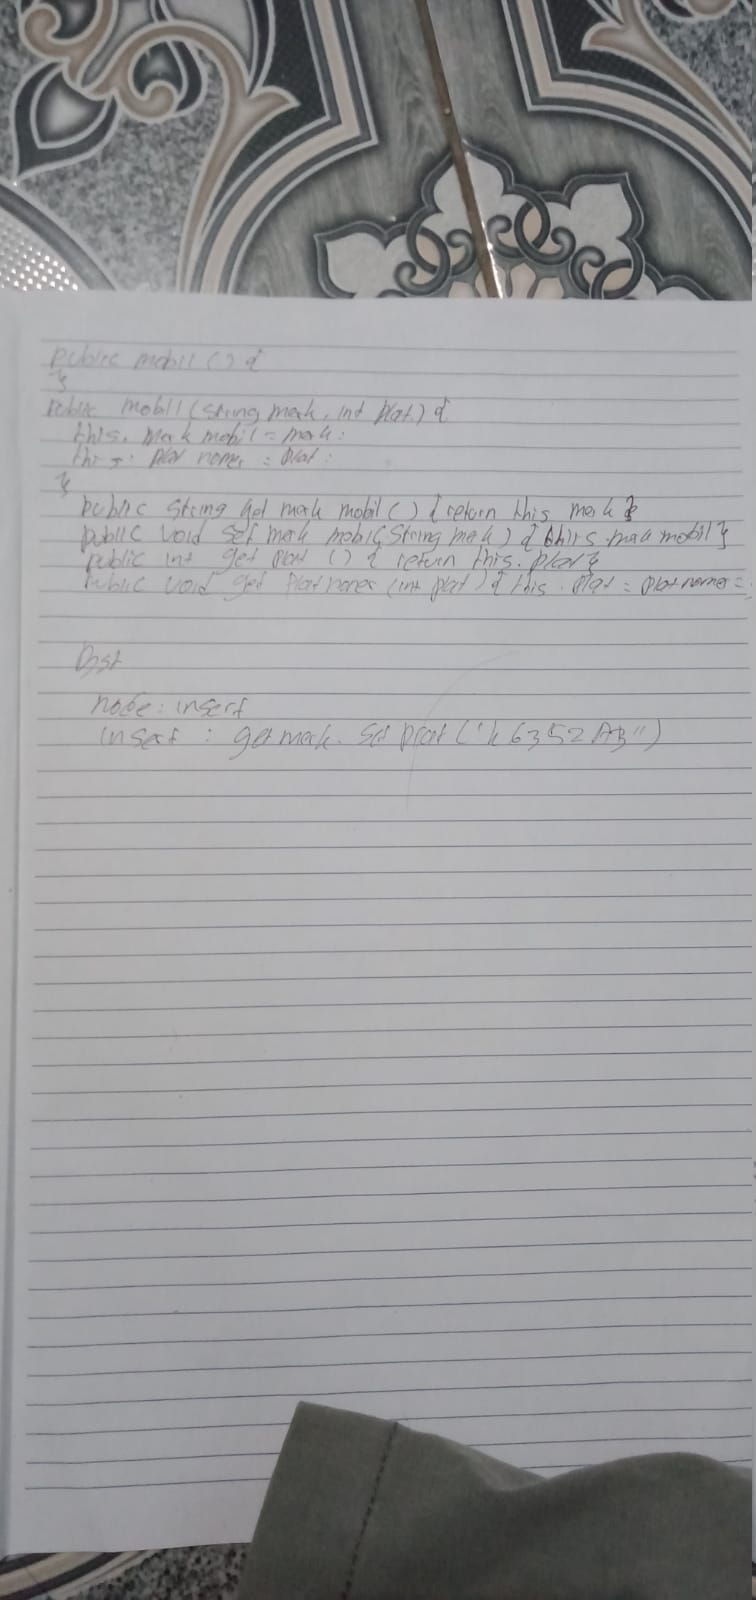 public mobil () {
}
public mobil (String merk, int plat) {
this. merk mobil = merk;
this. plat nomer = plat;
}
public String get merk mobil () { return this merk }
public void set merk mobil (String merk) { this mark mobil }
public int get plat () { return this. plat }
public void get plat nomer (int plat) { this. plat = plat nomer =
node: insert
insert : get merk. Set plat ("k 6352 AB")